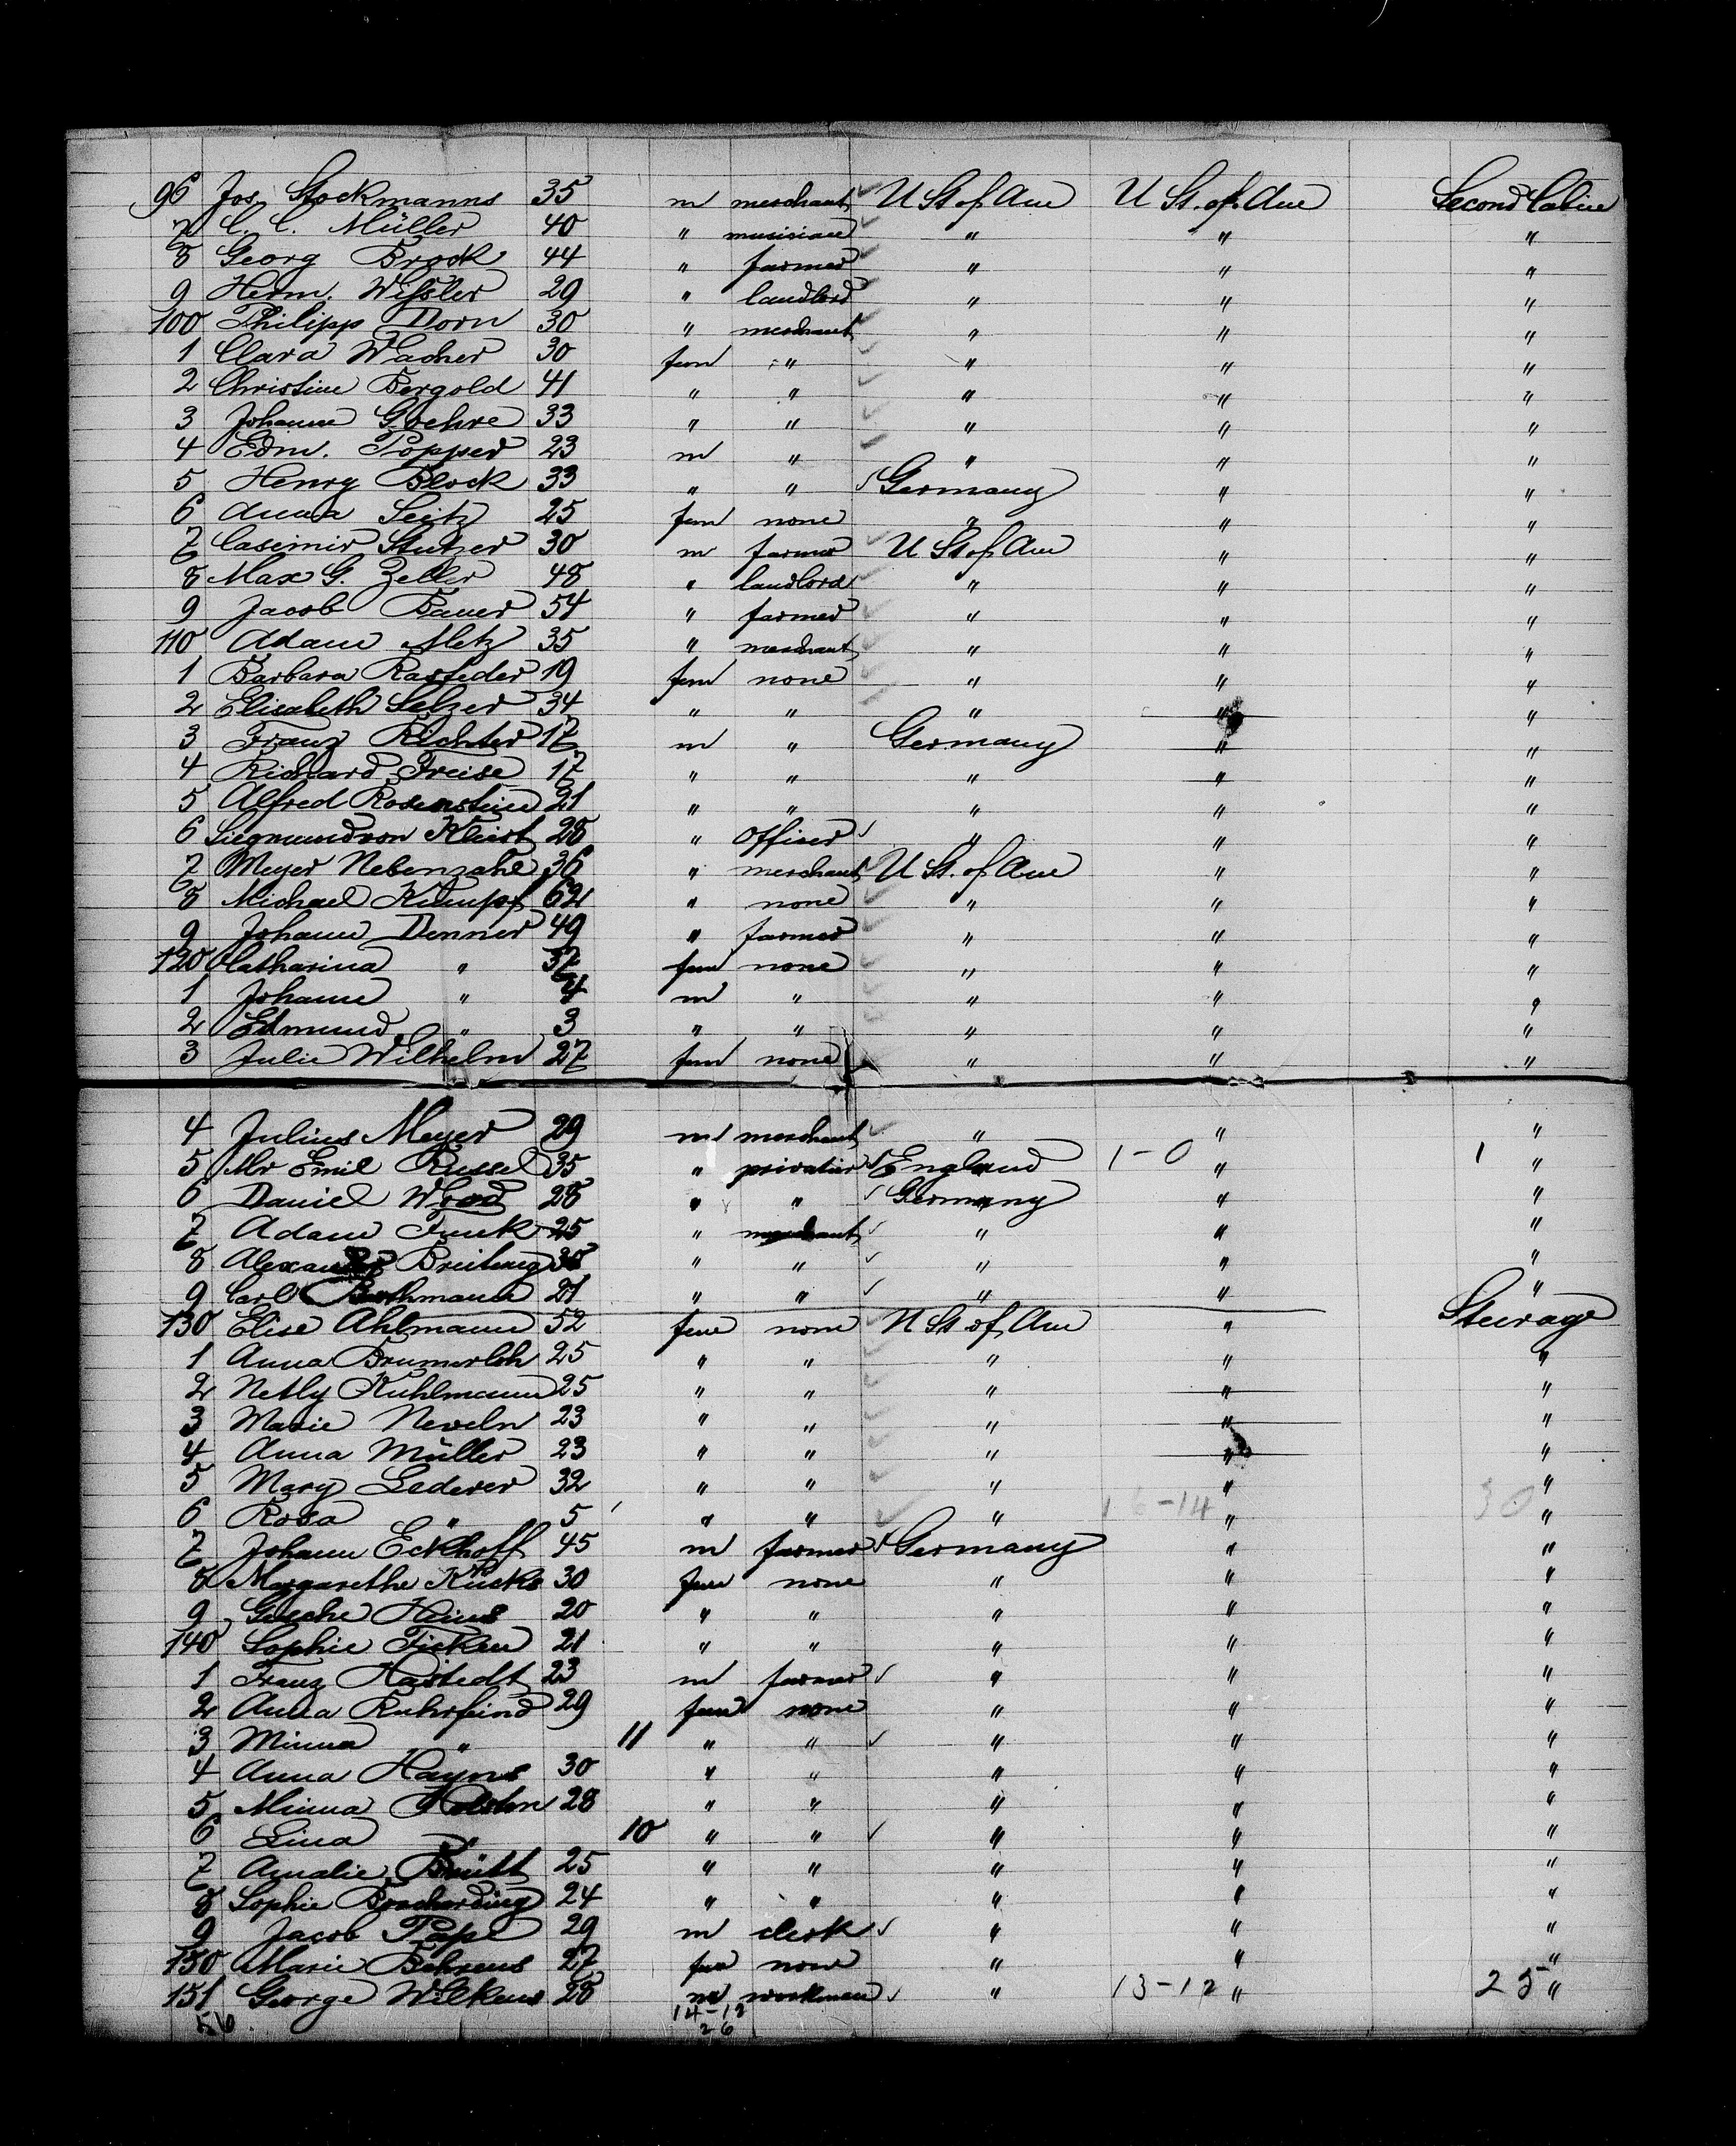 96 Jos. Stockmanns 35 m merchant U St of Am U St. of Am Second Cabin
7 C. C. Müller 40 " musician " " "
8 Georg Brock 44 " farmer " " "
9 Herm. Wißler 29 " landlord " " "
100 Philipp Dorn 30 " merchant " " "
1 Clara Wacher 30 fem " " " "
2 Christine Bergold 41 " " " " "
3 Johanne Goehre 33 " " " " "
4 Edm. Popper 23 m " " " "
5 Henry Block 33 " " Germany " "
6 Anna Seitz 25 fem none " " "
7 Casimir Stutzer 30 m farmer U St of Am " "
8 Max G. Zeller 48 " landlord " " "
9 Jacob Bauer 54 " farmer " " "
110 Adam Metz 35 " merchant " " "
1 Barbara Rasfeder 19 fem none " " "
2 Elisabeth Selzer 34 " " " " "
3 Franz Richter 17 m " Germany " "
4 Richard Freise 17 " " " " "
5 Alfred Rosenstein 21 " " " " "
6 Siegmund von Kleist 28 " officer " " "
7 Meyer Nebenzahl 36 " merchant U St. of Am " "
8 Michael Kumpf 62 " none " " "
9 Johann Denner 49 " farmer " " "
120 Catharina " 37 fem none " " "
1 Johann " 4 m " " " "
2 Edmund " 3 " " " " "
3 Julie Wilhelm 27 fem none " " "
4 Julius Meyer 29 m merchant " " "
5 Mr Emil Russel 35 " privatier England 1-0 " 1 "
6 Daniel Wood 28 " " Germany " "
7 Adam Funk 25 " merchant " " "
8 Alexander 36 " " " " "
9 Carl Bothmann 21 " " " " "
130 Elise Ahlmann 52 fem none U St of Am " Steerage
1 Anna 25 " " " " "
2 Netly Kuhlmann 25 " " " " "
3 Marie Neveln 23 " " " " "
4 Anna Müller 23 " " " " "
5 Mary Lederer 32 " " " " "
6 Rosa " 5 " " " 16-14 " 30 "
7 Johann Eckhoff 45 m farmer Germany " "
8 Margarethe Kücks 30 fem none " " "
9 Gesche Heins 20 " " " " "
140 Sophie Ficken 21 " " " " "
1 Franz Hastedt 23 m farmer " " "
2 Anna Ruhrfeind 29 fem none " " "
3 Minna " 11 " " " " "
4 Anna Hayns 30 " " " " "
5 Minna Holstn 28 " " " " "
6 Lina " 10 " " " " "
7 Amalie Brütt 25 " " " " "
8 Sophie Borcherding 24 " " " " "
9 Jacob Pape 29 m clerk " " "
150 Marie Behrens 27 fem none " " "
151 George Wilkens 28 m workman " 13-12 " 25 "
56 14-12
26